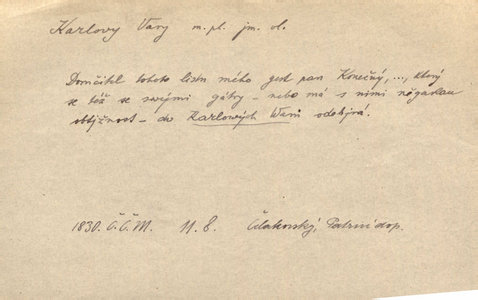 Karlovy Vary m. pl. jm. vl.
Doručitel tohoto listu mého gest pan Konečný, ..., který
se též se swými gátry – nebo má s nimi něgakau
obtjžnost – do Karlowých Warů odebjrá.
1830. Č.Č.M. 11. 8. Čelakovský, Patrní dop.